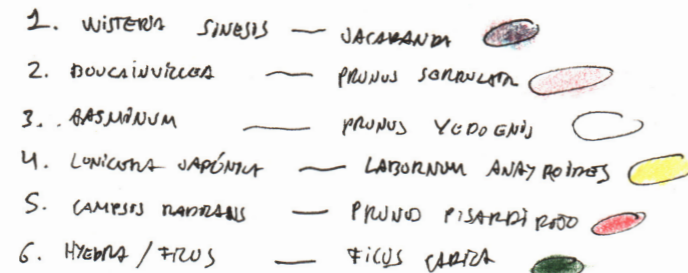 1. WISTERIA SINESIS — JACARANDA
2. BOUGAINVILLEA — PRUNUS SERRULATA
3. JASMINUM — PRUNUS YEDOENIS
4. LONICERA JAPÓNICA — LABURNUM ANAYROIDES
5. CAMPSIS RADICANS — PRUNO PISARDI ROJO
6. HYEDRA / FICUS — FICUS CARICA